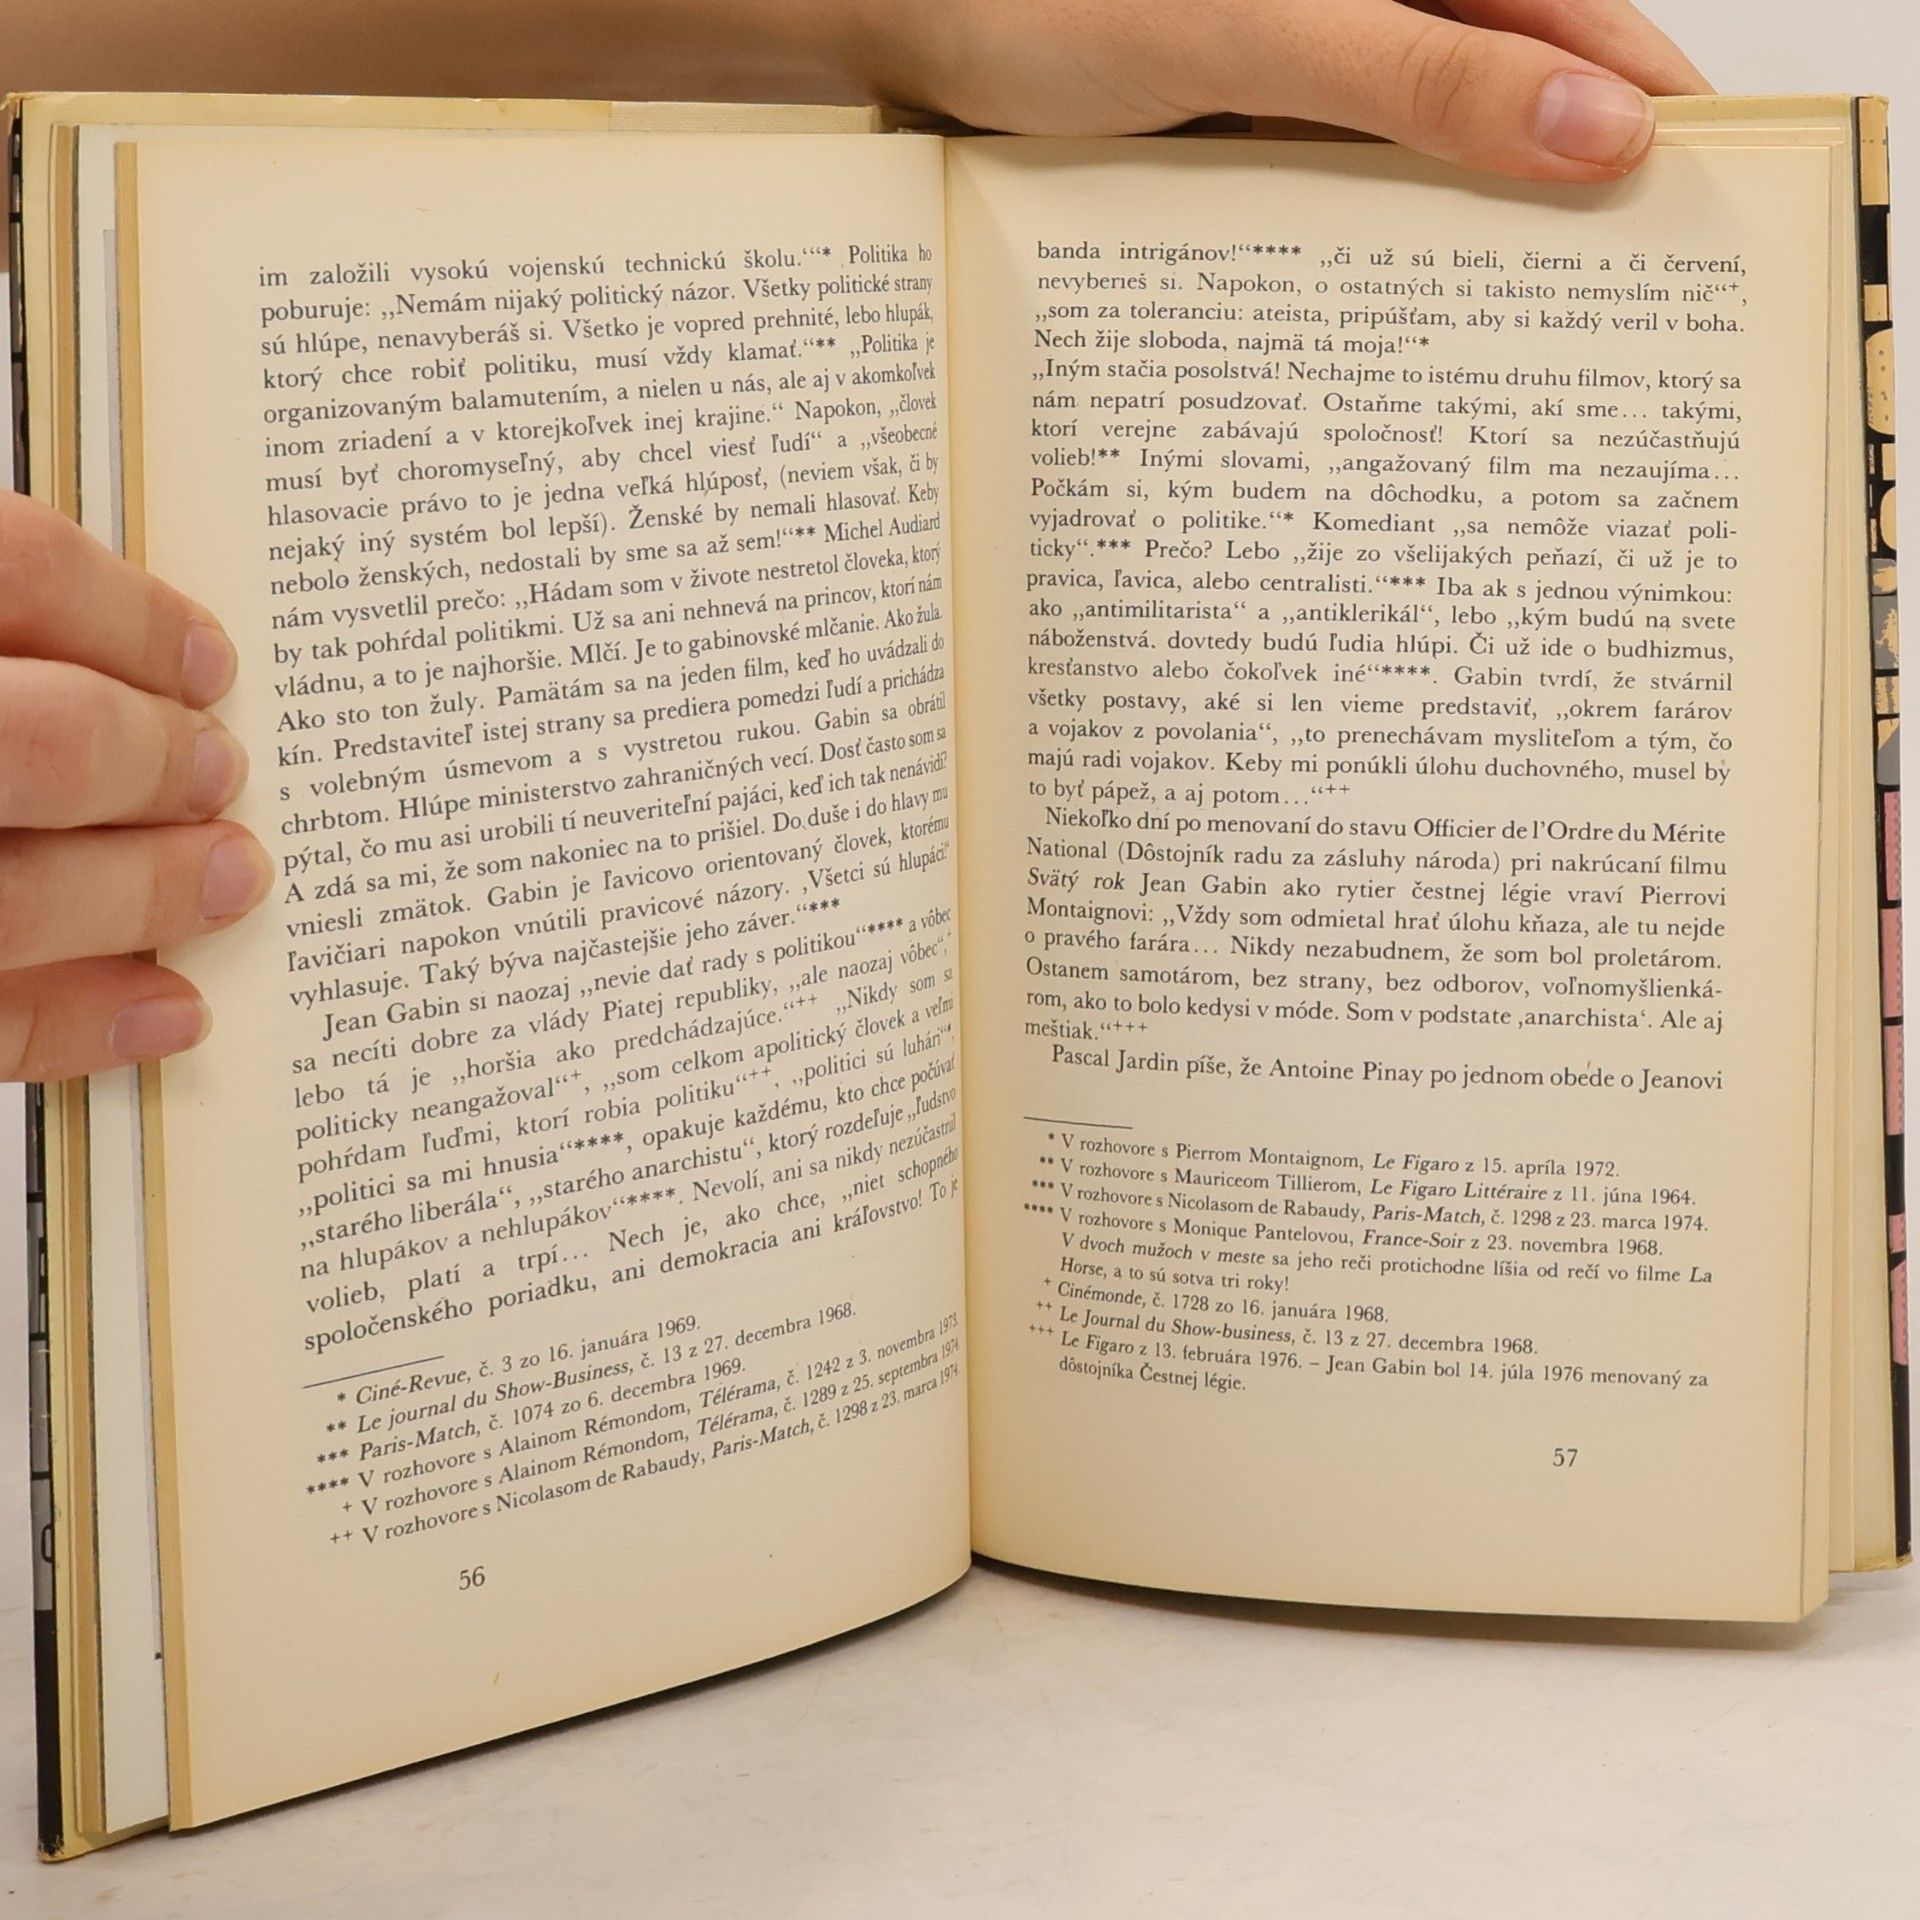 im založili vysokú vojenskú technickú školu.‘“* Politika ho
poburuje: „Nemám nijaký politický názor. Všetky politické strany
sú hlúpe, nenavyberáš si. Všetko je vopred prehnité, lebo hlupák,
ktorý chce robiť politiku, musí vždy klamať.“** „Politika je
organizovaným balamutením, a nielen u nás, ale aj v akomkoľvek
inom zriadení a v ktorejkoľvek inej krajine.“ Napokon, „človek
musí byť choromyseľný, aby chcel viesť ľudí“ a „všeobecné
hlasovacie právo to je jedna veľká hlúposť, (neviem však, či by
nejaký iný systém bol lepší). Ženské by nemali hlasovať. Keby
nebolo ženských, nedostali by sme sa až sem!“** Michel Audiard
nám vysvetlil prečo: „Hádam som v živote nestretol človeka, ktorý
by tak pohŕdal politikmi. Už sa ani nehnevá na princov, ktorí nám
vládnu, a to je najhoršie. Mlčí. Je to gabinovské mlčanie. Ako žula.
Ako sto ton žuly. Pamätám sa na jeden film, keď ho uvádzali do
kín. Predstaviteľ istej strany sa prediera pomedzi ľudí a prichádza
s volebným úsmevom a s vystretou rukou. Gabin sa obrátil
chrbtom. Hlúpe ministerstvo zahraničných vecí. Dosť často som sa
pýtal, čo mu asi urobili tí neuveriteľní pajáci, keď ich tak nenávidí?
A zdá sa mi, že som nakoniec na to prišiel. Do duše i do hlavy mu
vniesli zmätok. Gabin je ľavicovo orientovaný človek, ktorému
ľavičiari napokon vnútili pravicové názory. ‚Všetci sú hlupáci!‘
vyhlasuje. Taký býva najčastejšie jeho záver.“***
Jean Gabin si naozaj „nevie dať rady s politikou“**** a vôbec
sa necíti dobre za vlády Piatej republiky, „ale naozaj vôbec“,+
lebo tá je „horšia ako predchádzajúce.“++ „Nikdy som sa
politicky neangažoval“+, „som celkom apolitický človek a veľmi
pohŕdam ľuďmi, ktorí robia politiku“++, „politici sú luhári“*,
„politici sa mi hnusia“****, opakuje každému, kto chce počúvať
„starého liberála“, „starého anarchistu“, ktorý rozdeľuje „ľudstvo
na hlupákov a nehlupákov“****. Nevolí, ani sa nikdy nezúčastnil
volieb, platí a trpí... Nech je, ako chce, „niet schopného
spoločenského poriadku, ani demokracia ani kráľovstvo! To je
* Ciné-Revue, č. 3 zo 16. januára 1969.
** Le journal du Show-Business, č. 13 z 27. decembra 1968.
*** Paris-Match, č. 1074 zo 6. decembra 1969.
**** V rozhovore s Alainom Rémondom, Télérama, č. 1242 z 3. novembra 1973.
+ V rozhovore s Alainom Rémondom, Télérama, č. 1289 z 25. septembra 1974.
++ V rozhovore s Nicolasom de Rabaudy, Paris-Match, č. 1298 z 23. marca 1974.
56
banda intrigánov!“**** „či už sú bieli, čierni a či červení,
nevyberieš si. Napokon, o ostatných si takisto nemyslím nič“+,
„som za toleranciu: ateista, pripúšťam, aby si každý veril v boha.
Nech žije sloboda, najmä tá moja!“*
„Iným stačia posolstvá! Nechajme to istému druhu filmov, ktorý sa
nám nepatrí posudzovať. Ostaňme takými, akí sme... takými,
ktorí verejne zabávajú spoločnosť! Ktorí sa nezúčastňujú
volieb!** Inými slovami, „angažovaný film ma nezaujíma...
Počkám si, kým budem na dôchodku, a potom sa začnem
vyjadrovať o politike.“* Komediant „sa nemôže viazať poli-
ticky“.*** Prečo? Lebo „žije zo všelijakých peňazí, či už je to
pravica, ľavica, alebo centralisti.“*** Iba ak s jednou výnimkou:
ako „antimilitarista“ a „antiklerikál“, lebo „kým budú na svete
náboženstvá. dovtedy budú ľudia hlúpi. Či už ide o budhizmus,
kresťanstvo alebo čokoľvek iné“****. Gabin tvrdí, že stvárnil
všetky postavy, aké si len vieme predstaviť, „okrem farárov
a vojakov z povolania“, „to prenechávam mysliteľom a tým, čo
majú radi vojakov. Keby mi ponúkli úlohu duchovného, musel by
to byť pápež, a aj potom...“++
Niekoľko dní po menovaní do stavu Officier de l’Ordre du Mérite
National (Dôstojník radu za zásluhy národa) pri nakrúcaní filmu
Svätý rok Jean Gabin ako rytier čestnej légie vraví Pierrovi
Montaignovi: „Vždy som odmietal hrať úlohu kňaza, ale tu nejde
o pravého farára... Nikdy nezabudnem, že som bol proletárom.
Ostanem samotárom, bez strany, bez odborov, voľnomyšlienká-
rom, ako to bolo kedysi v móde. Som v podstate ‚anarchista‘. Ale aj
meštiak.“+++
Pascal Jardin píše, že Antoine Pinay po jednom obede o Jeanovi
* V rozhovore s Pierrom Montaignom, Le Figaro z 15. apríla 1972.
** V rozhovore s Mauriceom Tillierom, Le Figaro Littéraire z 11. júna 1964.
*** V rozhovore s Nicolasom de Rabaudy, Paris-Match, č. 1298 z 23. marca 1974.
**** V rozhovore s Monique Pantelovou, France-Soir z 23. novembra 1968.
V dvoch mužoch v meste sa jeho reči protichodne líšia od rečí vo filme La
Horse, a to sú sotva tri roky!
+ Cinémonde, č. 1728 zo 16. januára 1968.
++ Le Journal du Show-business, č. 13 z 27. decembra 1968.
+++ Le Figaro z 13. februára 1976. – Jean Gabin bol 14. júla 1976 menovaný za
dôstojníka Čestnej légie.
57